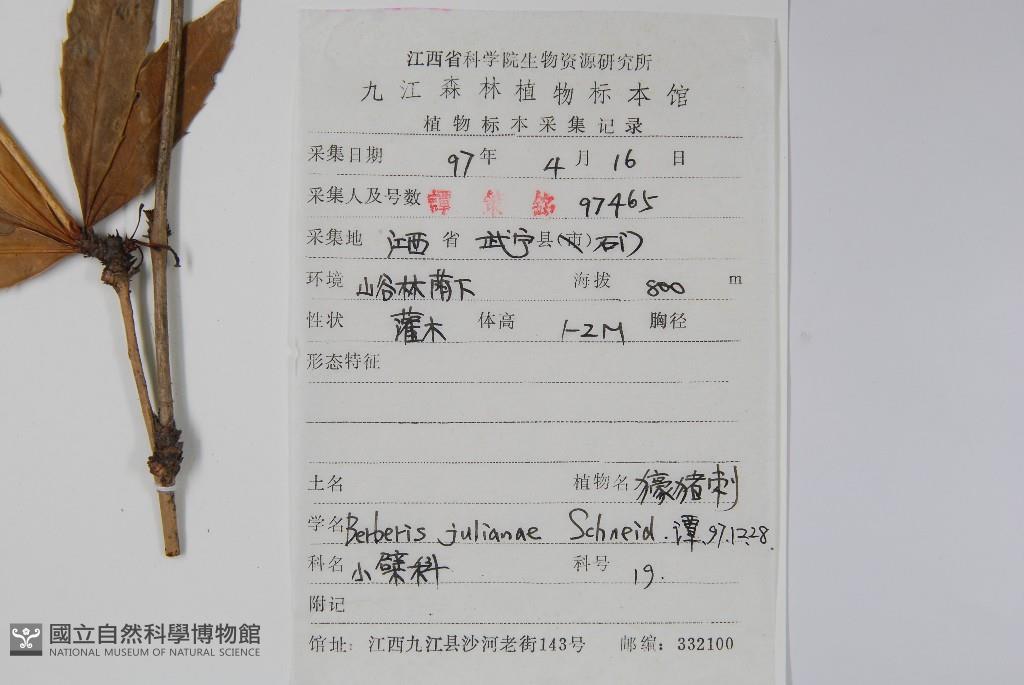 江西省科学院生物资源研究所
九江森林植物标本馆
植物标本采集记录
采集日期 97年 4月 16日
采集人及号数 譚策銘 97465
采集地 江西省 武宁县(市) 石门
环境 山谷林荫下 海拔 800 m
性状 灌木 体高 1-2M 胸径
形态特征
土名 植物名 豪猪刺
学名 Berberis julianae Schneid. 谭.97.12.28.
科名 小檗科 科号 19.
附记
馆址: 江西九江县沙河老街143号 邮编: 332100
國立自然科學博物館
NATIONAL MUSEUM OF NATURAL SCIENCE